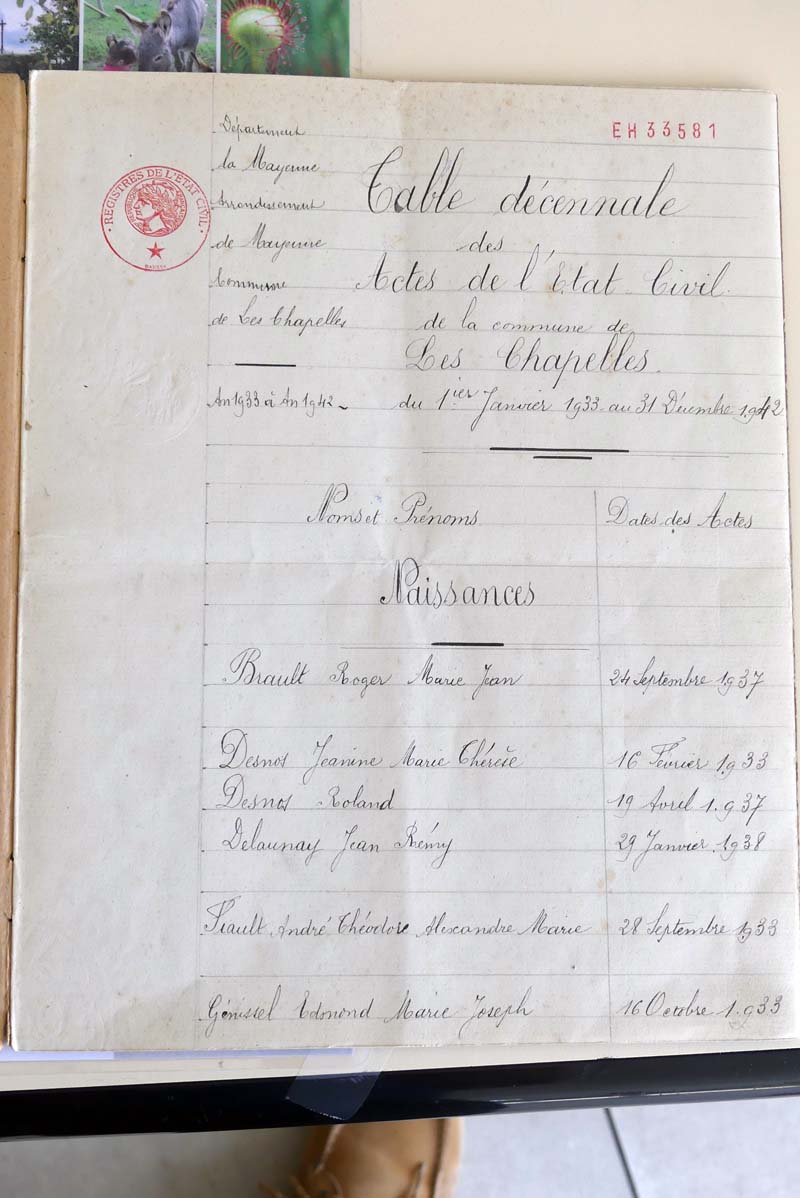 EH 33581
REGISTRES DE L'ÉTAT CIVIL
RÉPUBLIQUE FRANÇAISE
Département
la Mayenne
Arrondissement
de Mayenne
Commune
de Les Chapelles
An 1933 à An 1942
Table décennale
des
Actes de l'Etat Civil.
de la commune de
Les Chapelles.
du 1ier Janvier 1933 au 31 Décembre 1942
Noms et Prénoms
Dates des Actes
Naissances
Brault Roger Marie Jean 24 Septembre 1937
Desnos Jeanine Marie Thérèse 16 Février 1933
Desnos Roland 19 Avril 1937
Delaunay Jean Rémy 29 Janvier 1938
André Théodore Alexandre Marie 28 Septembre 1933
Génissel Edmond Marie Joseph 16 Octobre 1933